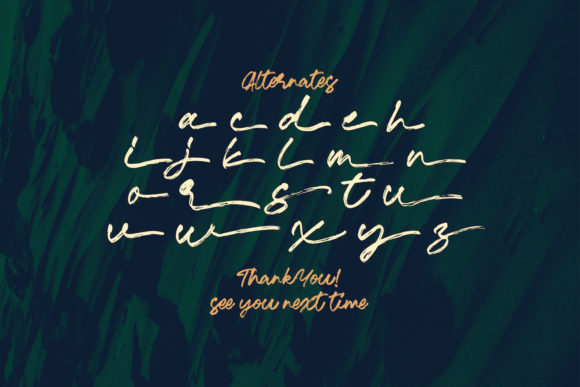 Alternates
a c d e h
i j k l m n
o r s t u
v w x y z
ThankYou!
see you next time